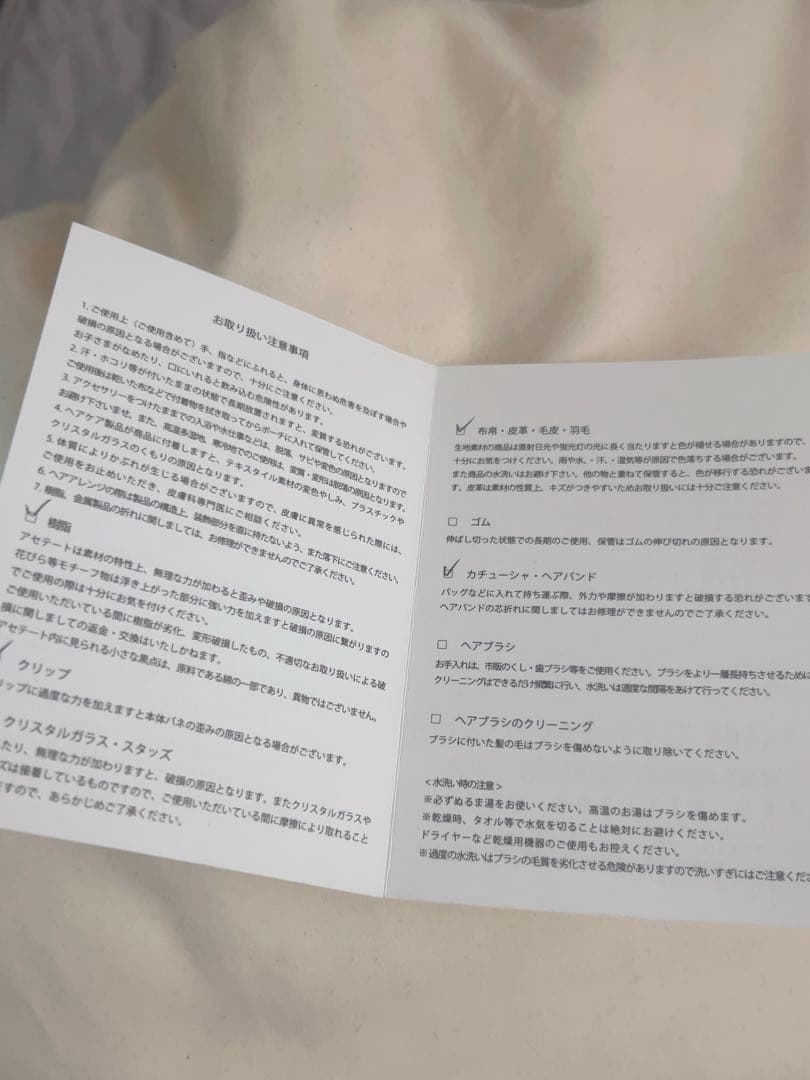 お取り扱い注意事項
1. ご使用上（ご使用含めて）手、指などにふれると、身体に思わぬ危害を及ぼす場合や
破損の原因となる場合がございますので、十分にご注意ください。
お子さまがなめたり、口にいれると飲み込む危険性があります。
2. 汗・ホコリ等が付いたままの状態で長期放置されますと、変質する恐れがございます。
ご使用後は乾いた布などで付着物を拭き取ってからポーチに入れて保管してください。
3. アクセサリーをつけたままでの入浴や水仕事などは、脱落、サビや変色の原因となりますので
お避け下さいませ。また、高温多湿地、寒冷地でのご使用は、変質・変形は脱落の原因となります。
4. ヘアケア製品が商品に付着しますと、テキスタイル素材の変色やしみ、プラスチックや
クリスタルガラスのくもりの原因となります。
5. 体質によりかぶれが生じる場合がございますので、皮膚に異常を感じられた際には、
ご使用をお止めいただき、皮膚科専門医にご相談ください。
6. ヘアアレンジの際は製品の構造上、装飾部分を直に持たないよう、また落下にご注意ください。
7. 樹脂、金属製品の折れに関しましては、お修理ができませんのでご了承ください。
樹脂
アセテートは素材の特性上、無理な力が加わると歪みや破損の原因となります。
花びら等モチーフ物は浮き上がった部分に強い力を加えますと破損の原因に繋がりますの
でご使用の際は十分にお気を付けください。
ご使用いただいている間に樹脂が劣化、変形破損したもの、不適切なお取り扱いによる破
損に関しましての返金・交換はいたしかねます。
アセテート内に見られる小さな黒点は、原料である綿の一部であり、異物ではございません。
クリップ
リップに過度な力を加えますと本体バネの歪みの原因となる場合がございます。
クリスタルガラス・スタッズ
たり、無理な力が加わりますと、破損の原因となります。またクリスタルガラスや
ズは接着しているものですので、ご使用いただいている間に摩擦により取れること
ますので、あらかじめご了承ください。
布帛・皮革・毛皮・羽毛
生地素材の商品は直射日光や蛍光灯の光に長く当たりますと色が褪せる場合がありますので、
十分にお気をつけください。雨や水、・汗、・湿気等が原因で色落ちする場合がございます。
また商品の水洗いはお避け下さい。他の物と重ねて保管すると、色が移行する恐れがございま
す。皮革は素材の性質上、キズがつきやすいためお取り扱いには十分ご注意ください。
□ ゴム
伸ばし切った状態での長期のご使用、保管はゴムの伸び切れの原因となります。
カチューシャ・ヘアバンド
バッグなどに入れて持ち運ぶ際、外力や摩擦が加わりますと破損する恐れがございます
ヘアバンドの芯折れに関しましてはお修理ができませんのでご了承ください。
□ ヘアブラシ
お手入れは、市販のくし・歯ブラシ等をご使用ください。ブラシをより一層長持ちさせるために
クリーニングはできるだけ頻繁に行い、水洗いは適度な間隔をあけて行ってください。
□ ヘアブラシのクリーニング
ブラシに付いた髪の毛はブラシを傷めないように取り除いてください。
＜水洗い時の注意＞
※必ずぬるま湯をお使いください。高温のお湯はブラシを傷めます。
※乾燥時、タオル等で水気を切ることは絶対にお避けください。
ドライヤーなど乾燥用機器のご使用もお控えください。
※過度の水洗いはブラシの毛質を劣化させる危険がありますので洗いすぎにはご注意くださ